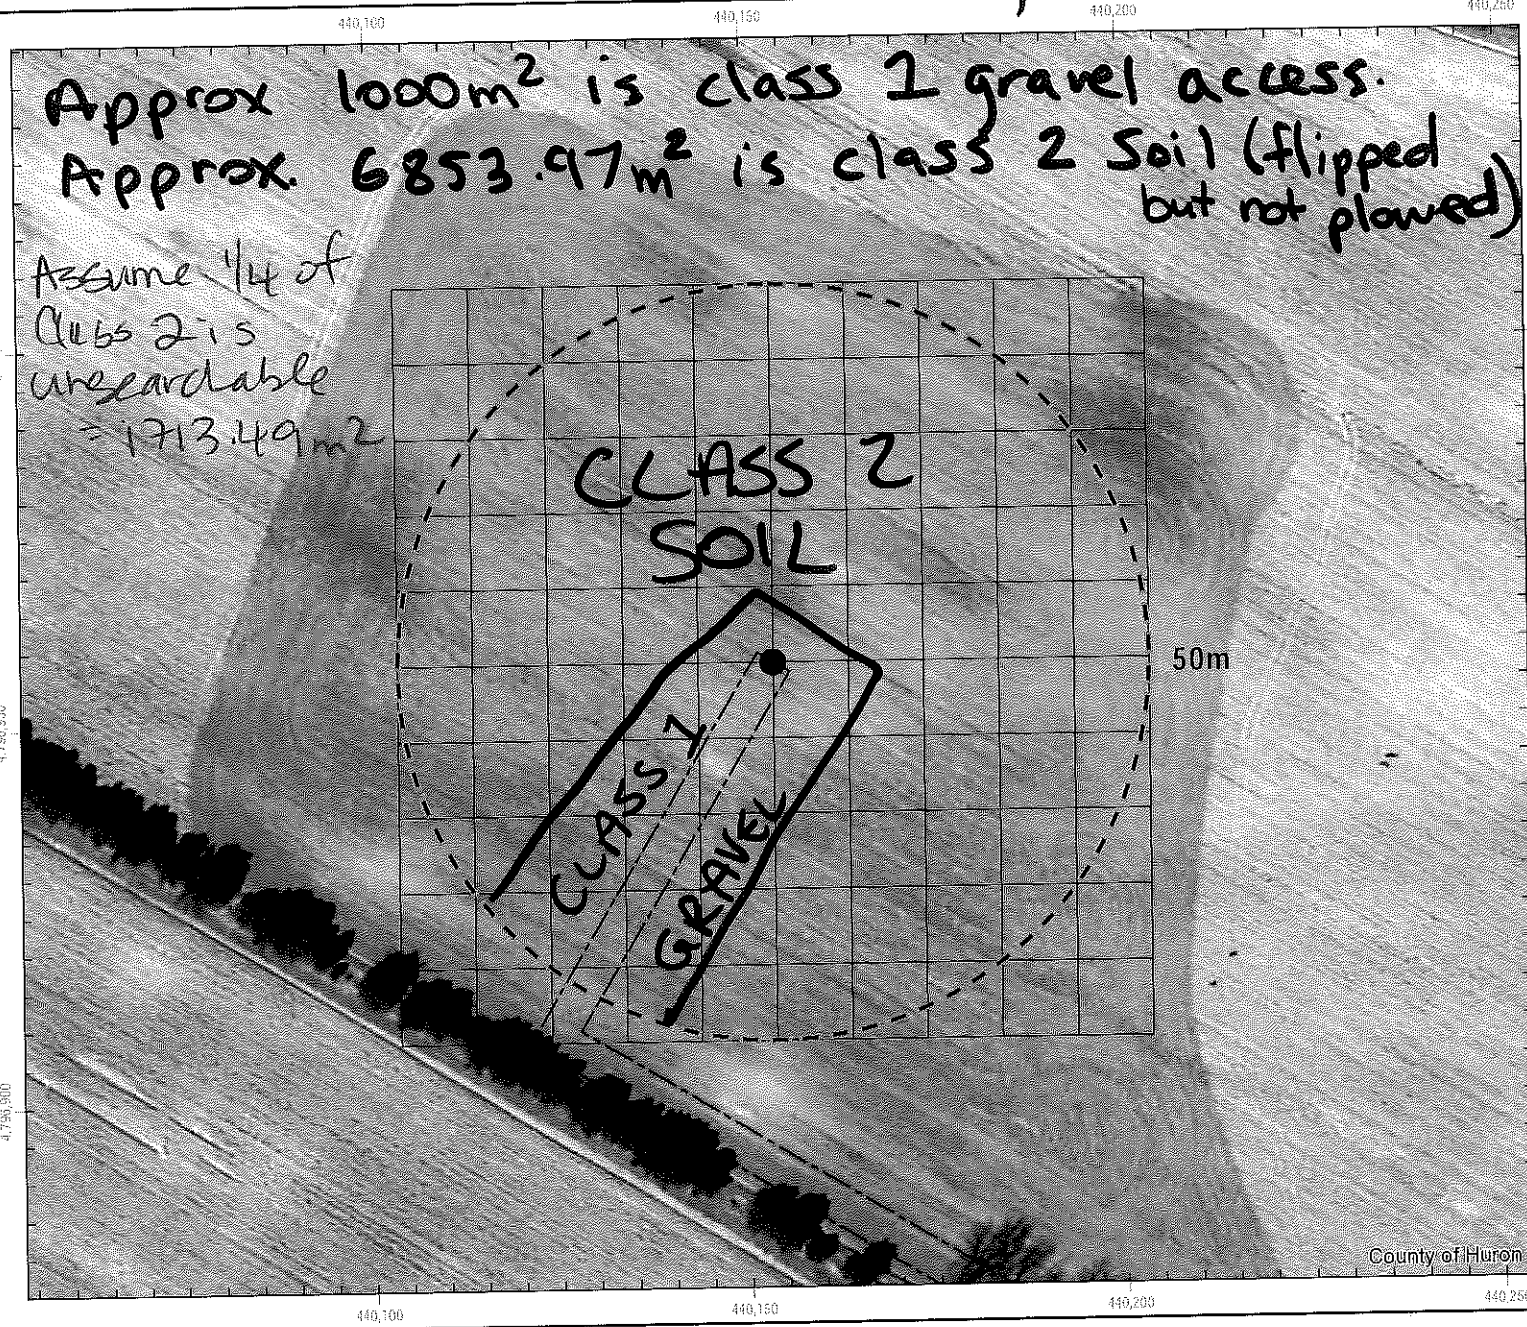 440,100 440,150 440,200 440,250
Approx 1000m² is class 1 gravel access.
Approx. 6853.97m² is class 2 Soil (flipped
but not plowed)
Assume 1/4 of
Class 2 is
unsearchable
= 1713.49m²
CLASS 2
SOIL
50m
CLASS 1
GRAVEL
4,796,950
4,796,900
County of Huron
440,100 440,150 440,200 440,250